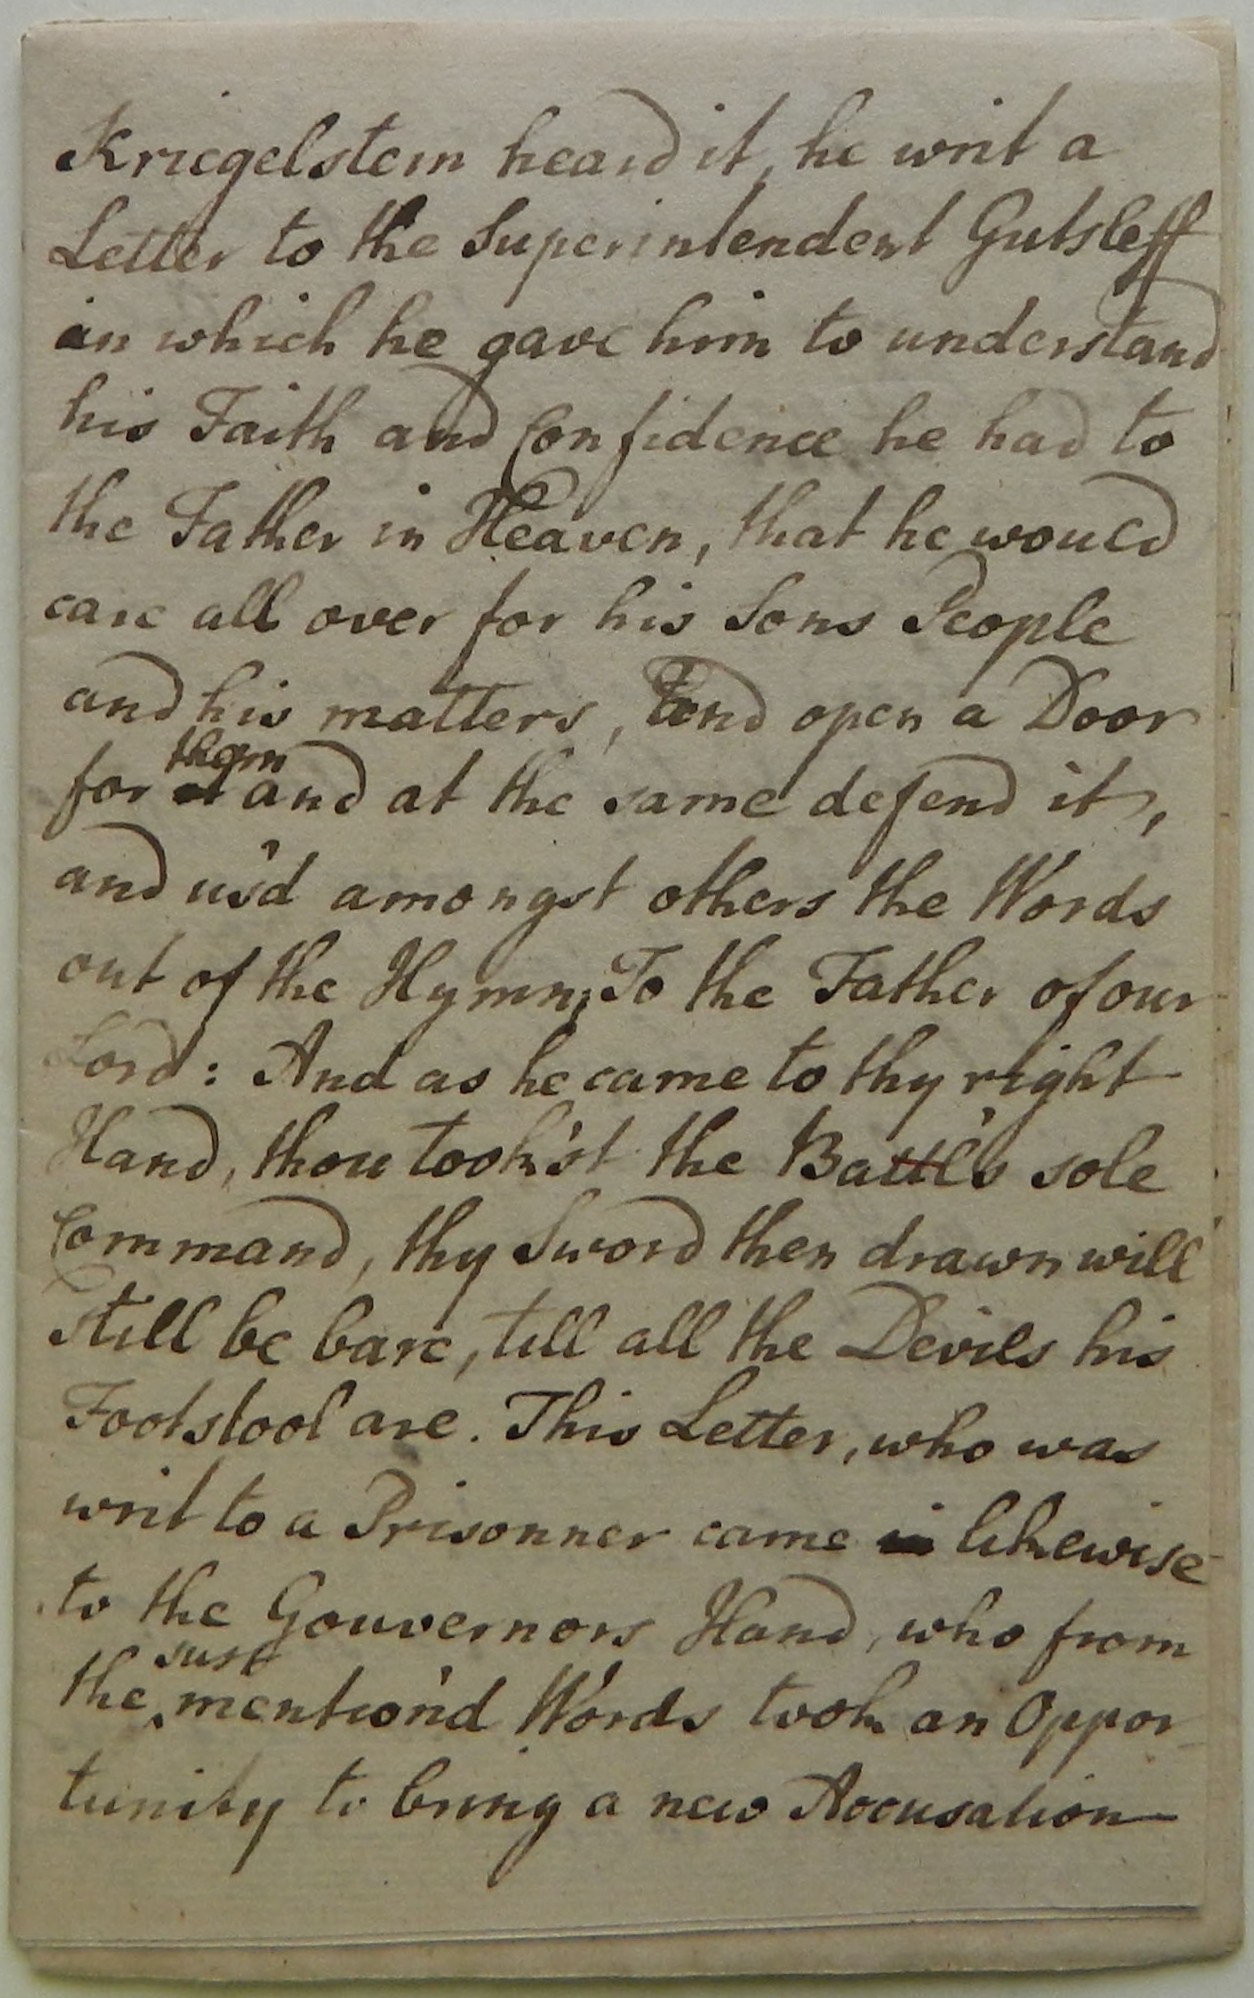 Kriegelstein heard it, he writ a
Letter to the Superintendent Gutsleff
in which he gave him to understand
his Faith and Confidence he had to
the Father in Heaven, that he would
care all over for his Sons People
and his matters, and open a Door
for them and at the same defend it,
and us'd amongst others the Words
out of the Hymn; To the Father of our
Lord: And as he came to thy right
Hand, thou took'st the Battl's sole
Command, thy Sword then drawn will
still be bare, till all the Devils his
Footstool are. This Letter, who was
writ to a Prisonner came likewise
to the Gouvernors Hand, who from
the just mention'd Words took an Oppor
tunity to bring a new Accusation